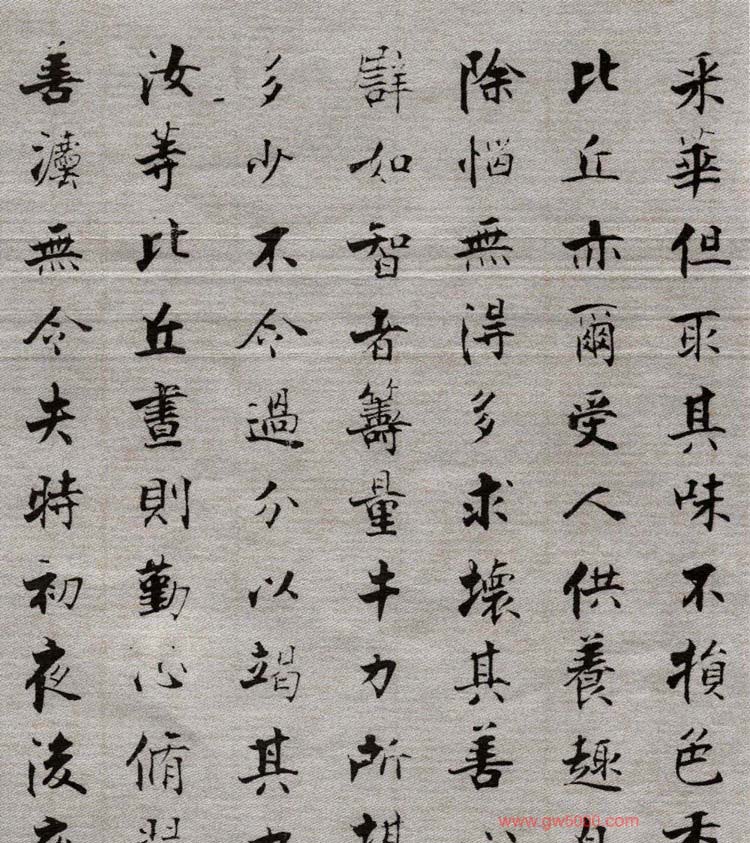 采華但取其味不損色香
比丘亦爾受人供養趣自
除惱無得多求壞其善心
譬如智者籌量牛力所堪
多少不令過分以竭其力
汝等比丘晝則勤心脩習
善法無令失時初夜後夜
www.gw5000.com